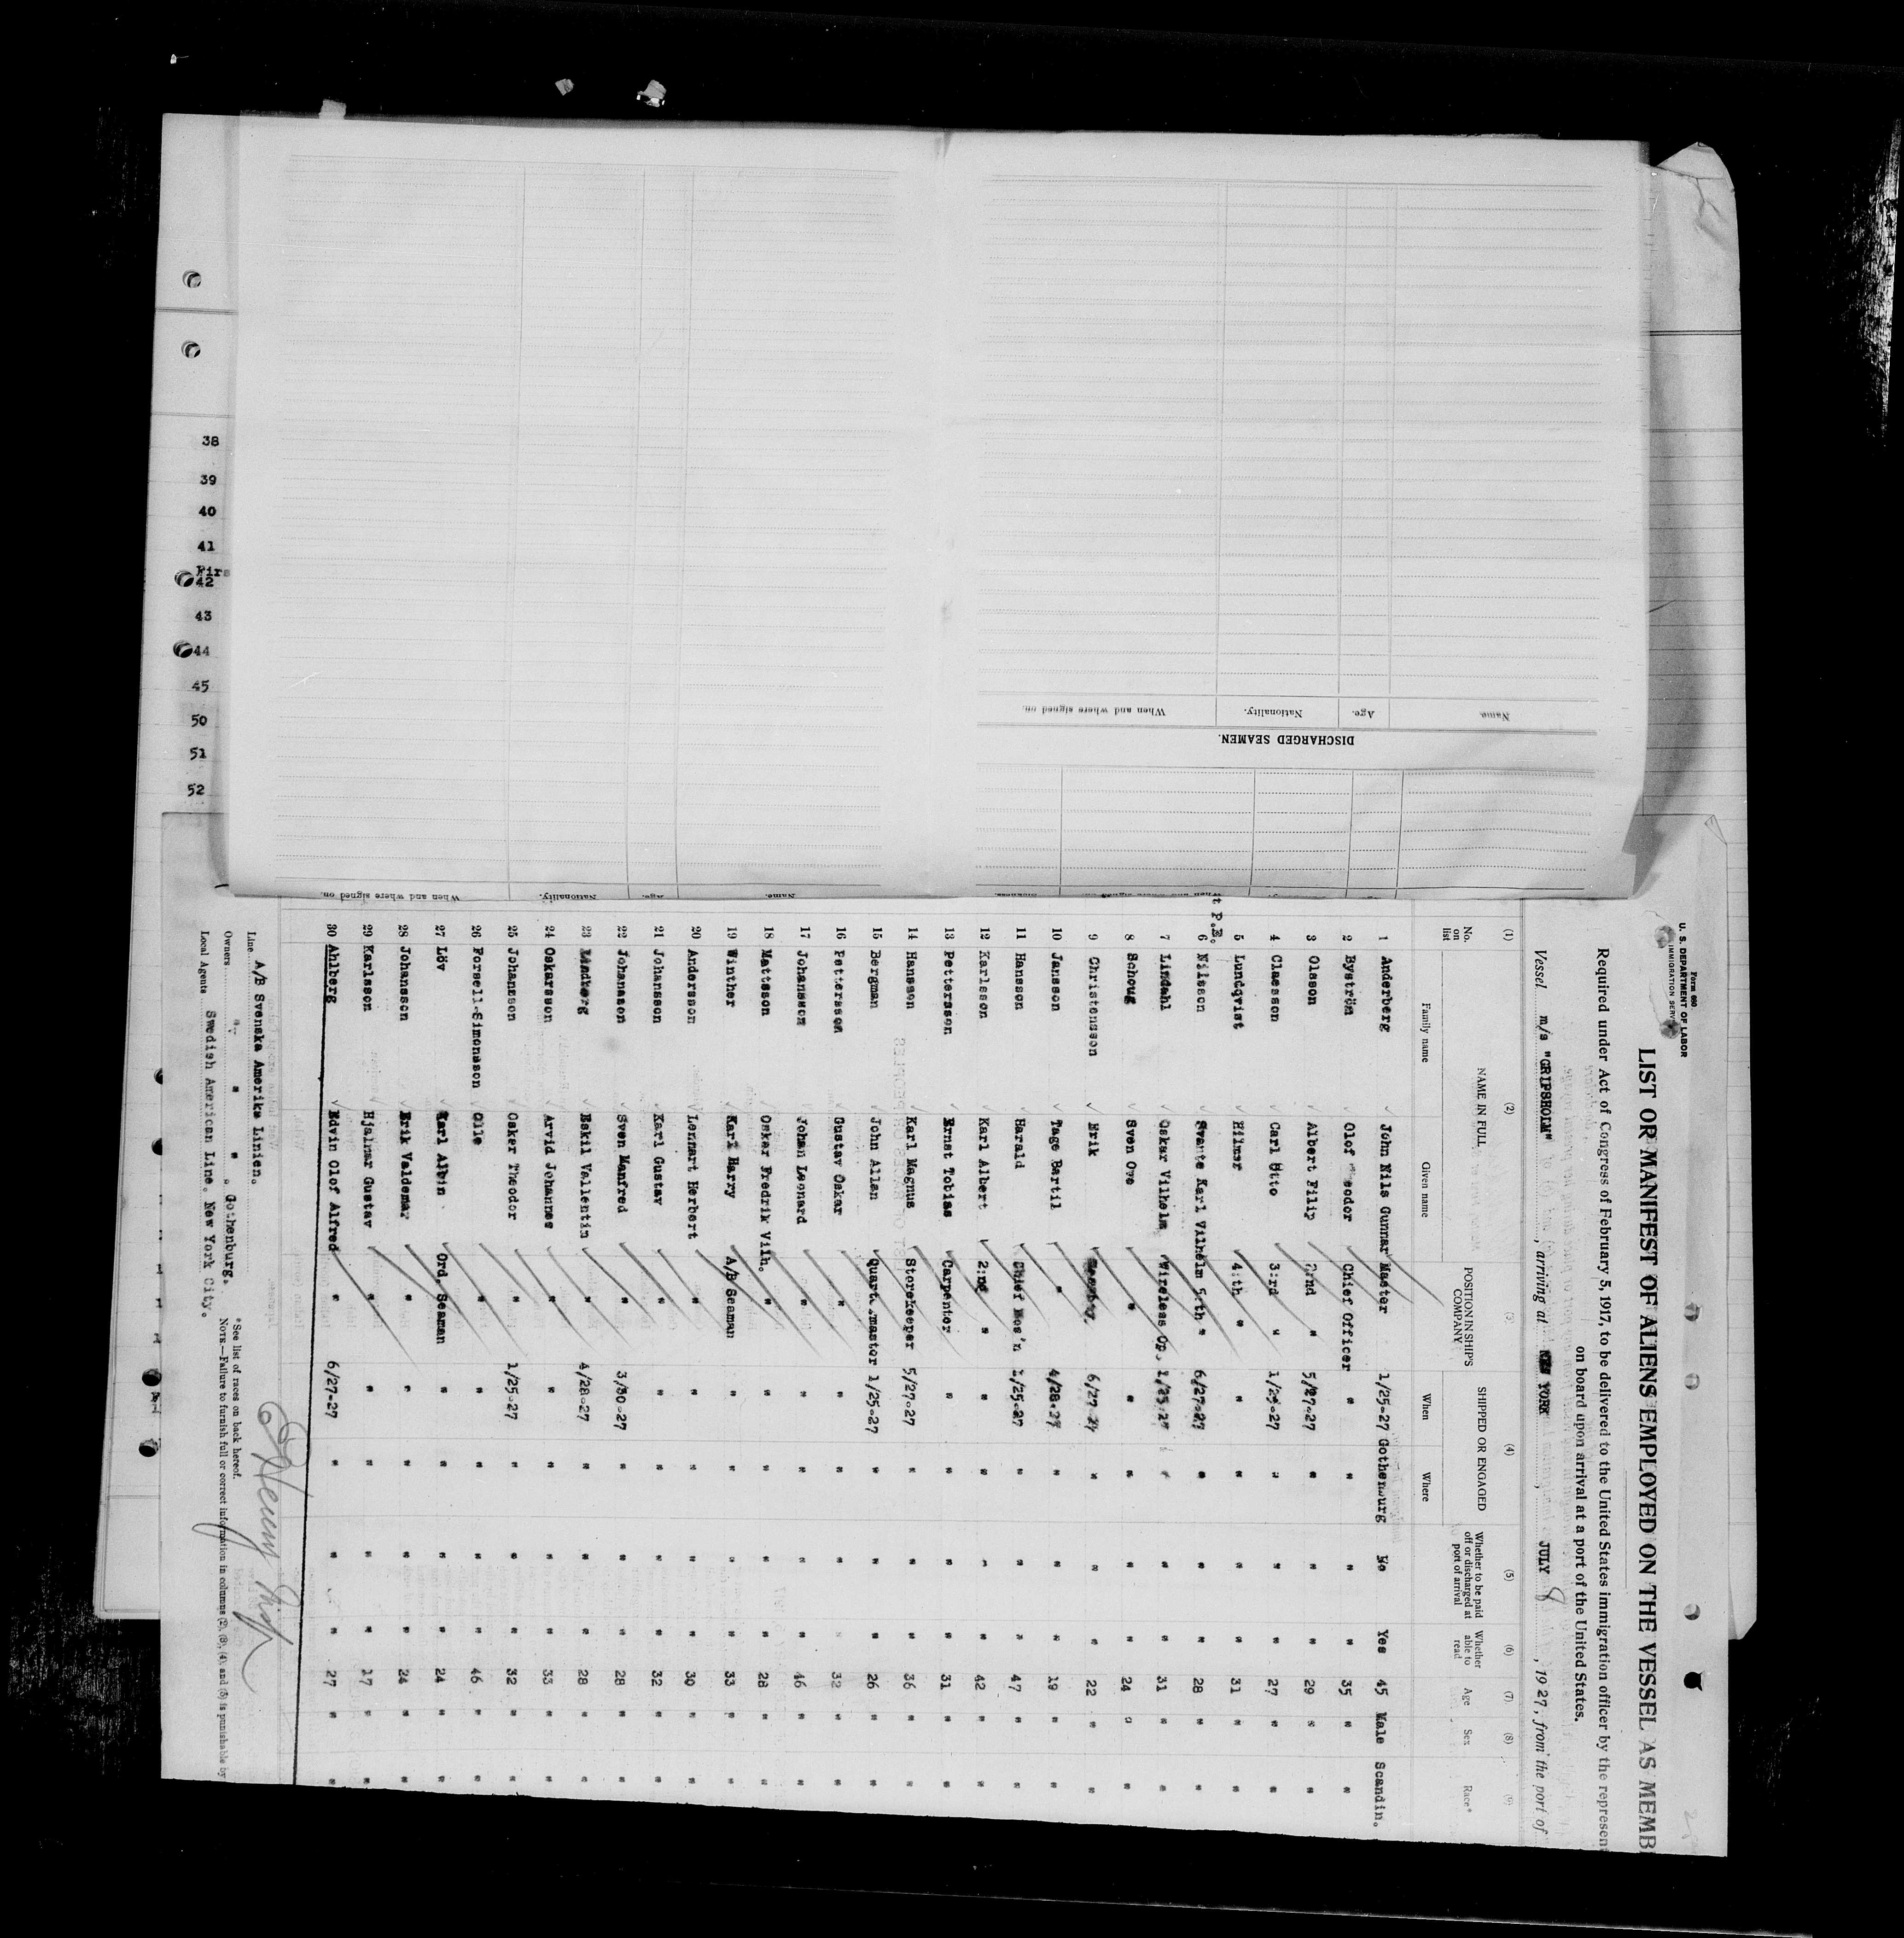 38
39
40
41
Firs
42
43
44
45
50
51
52
DISCHARGED SEAMEN.
Name. Age. Nationality. When and where signed on.
Name. Age. Nationality. When and where signed on.
Form 680
U. S. DEPARTMENT OF LABOR
IMMIGRATION SERV
LIST OR MANIFEST OF ALIENS EMPLOYED ON THE VESSEL AS MEMB
Required under Act of Congress of February 5, 1917, to be delivered to the United States immigration officer by the represen
on board upon arrival at a port of the United States.
Vessel m/s "GRIPSHOLM", arriving at NEW YORK, JULY 8, 1927, from the port of
(1) (2) (3) (4) (5) (6) (7) (8) (9)
No. on list NAME IN FULL POSITION IN SHIP'S COMPANY SHIPPED OR ENGAGED Whether to be paid off or discharged at port of arrival Whether able to read Age Sex Race*
Family name Given name When Where
1 Anderberg John Nils Gunnar Master 1/25-27 Gothenburg No Yes 45 Male Scandin.
2 Byström Olof Chief Officer " " " " 35 " "
3 Olsson Albert Filip 2:nd " 5/27-27 " " " 29 " "
4 Claesson Carl Otto 3:rd " 1/25-27 " " " 27 " "
5 Lundqvist Hilmer 4:th " " " " " 31 " "
t P.E.
6 Nilsson Svante Karl Vilhelm 5:th " 6/27-27 " " " 28 " "
7 Lindahl Oskar Vilhelm Wireless Op. 1/25-27 " " " 31 " "
8 Schoug Sven Ove " " " " " 24 " "
9 Christensson Erik 6/27-27 " " " 22 " "
10 Jansson Tage Bartil " 4/28-27 " " " 19 " "
11 Hansson Harald Chief Bos'n 1/25-27 " " " 47 " "
12 Karlsson Karl Albert 2:nd " " " " " 42 " "
13 Pettersson Ernst Tobias Carpenter " " " " 31 " "
14 Hansson Karl Magnus Storekeeper 5/27-27 " " " 36 " "
15 Bergman John Allan 1/25-27 " " " 26 " "
16 Pettersson Gustav Oskar " " " " " 32 " "
17 Johansson Johan Leonard " " " " " 46 " "
18 Mattsson Oskar Fredrik Vilh. " " " " " 28 " "
19 Winther Karl Harry A/B Seaman " " " " 33 " "
20 Andersson Lennart Herbert " " " " " 30 " "
21 Johansson Karl Gustav " " " " " 32 " "
22 Johansson Sven Manfred " 3/30-27 " " " 28 " "
23 Lindberg Eskil Vallentin " 4/28-27 " " " 28 " "
24 Oskarsson Arvid Johannes " " " " " 33 " "
25 Johansson Oskar Theodor " 1/25-27 " " " 32 " "
26 Forsell-Simonsson Olle " " " " " 46 " "
27 Löv Karl Albin Ord. Seaman " " " " 24 " "
28 Johansson Erik Valdemar " " " " " 24 " "
29 Karlsson Hjalmar Gustav " " " " " 17 " "
30 Ahlberg Edvin Olof Alfred " 6/27-27 " " " 27 " "
Line A/B Svenska Amerika Linien.
Owners " " " Gothenburg.
Local Agents Swedish American Line. New York City.
*See list of races on back hereof.
NOTE.—Failure to furnish full or correct information in columns (2), (3), (4), and (5) is punishable by